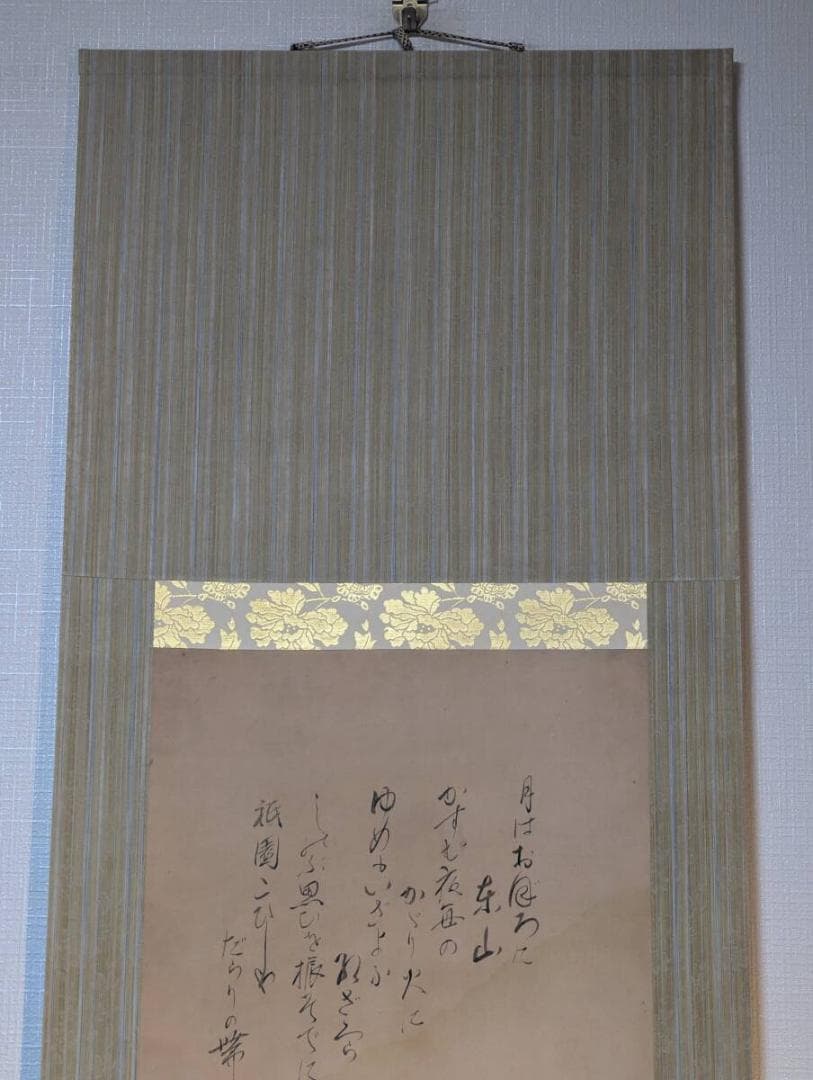 月はおぼろに
東山
かすむ夜毎の
かゞり火に
ゆめもいざよふ
紅ざくら
しのぶ思ひを振そでに
祇園こひしや
だらりの帯